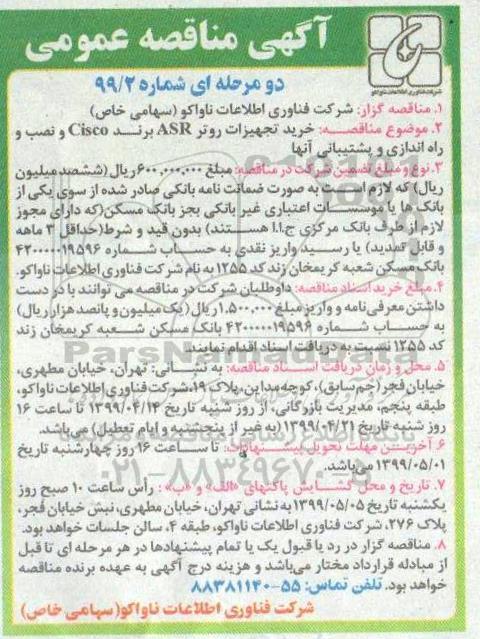 آگهی مناقصه عمومی
شرکت فناوری اطلاعات ناواکو
دو مرحله ای شماره ۹۹/۲
۱. مناقصه گزار: شرکت فناوری اطلاعات ناواکو (سهامی خاص)
۲. موضوع مناقصه: خرید تجهیزات روتر ASR برند Cisco و نصب و
راه اندازی و پشتیبانی آنها
۳. نوع و مبلغ تضمین شرکت در مناقصه: مبلغ ۶۰۰,۰۰۰,۰۰۰ ریال (ششصد میلیون
ریال) که لازم است به صورت ضمانت نامه بانکی صادر شده از سوی یکی از
بانک ها یا موسسات اعتباری غیر بانکی بجز بانک مسکن(که دارای مجوز
لازم از طرف بانک مرکزی ج.ا.ا هستند) بدون قید و شرط(حداقل ۳ ماهه
و قابل تمدید) یا رسید واریز نقدی به حساب شماره ۴۲۰۰۰۰۰۱۹۵۹۶
بانک مسکن شعبه کریمخان زند کد ۱۲۵۵ به نام شرکت فناوری اطلاعات ناواکو.
۴. مبلغ خرید اسناد مناقصه: داوطلبان شرکت در مناقصه می توانند با در دست
داشتن معرفی نامه و واریز مبلغ ۱.۵۰۰,۰۰۰ ریال ( یک میلیون و پانصد هزار ریال)
به حساب شماره ۴۲۰۰۰۰۰۱۹۵۹۶ بانک مسکن شعبه کریمخان زند
کد ۱۲۵۵ نسبت به دریافت اسناد اقدام نمایند.
۵. محل و زمان دریافت اسناد مناقصه: به نشانی: تهران، خیابان مطهری،
خیابان فجر(جم سابق)، کوچه مداین، پلاک ۱۹، شرکت فناوری اطلاعات ناواکو،
طبقه پنجم، مدیریت بازرگانی، از روز شنبه تاریخ ۱۳۹۹/۰۴/۱۴ تا ساعت ۱۶
روز شنبه تاریخ ۱۳۹۹/۰۴/۲۱ (به غیر از پنجشنبه و ایام تعطیل) می باشد.
۶. آخرین مهلت تحویل پیشنهادات: تا ساعت ۱۶ روز چهارشنبه تاریخ
۱۳۹۹/۰۵/۰۱ می باشد.
۷. تاریخ و محل گشایش پاکتهای «الف» و «ب» : رأس ساعت ۱۰ صبح روز
یکشنبه تاریخ ۱۳۹۹/۰۵/۰۵ به نشانی تهران، خیابان مطهری، نبش خیابان فجر،
پلاک ۲۷۶، شرکت فناوری اطلاعات ناواکو، طبقه ۴، سالن جلسات خواهد بود.
۸. مناقصه گزار در رد یا قبول یک یا تمام پیشنهادها در هر مرحله ای تا قبل
از مبادله قرارداد مختار می باشد و هزینه درج آگهی به عهده برنده مناقصه
خواهد بود. تلفن تماس: ۵۵-۸۸۳۸۱۱۴۰
شرکت فناوری اطلاعات ناواکو(سهامی خاص)
ParsNamadData
۰۲۱-۸۸۳۴۹۶۷۰